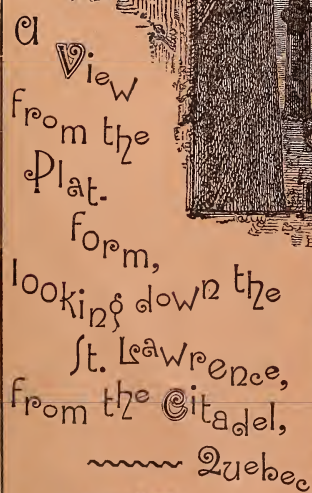 A
View
from the
Plat-
form,
looking down the
St. Lawrence,
from the Citadel,
Quebec